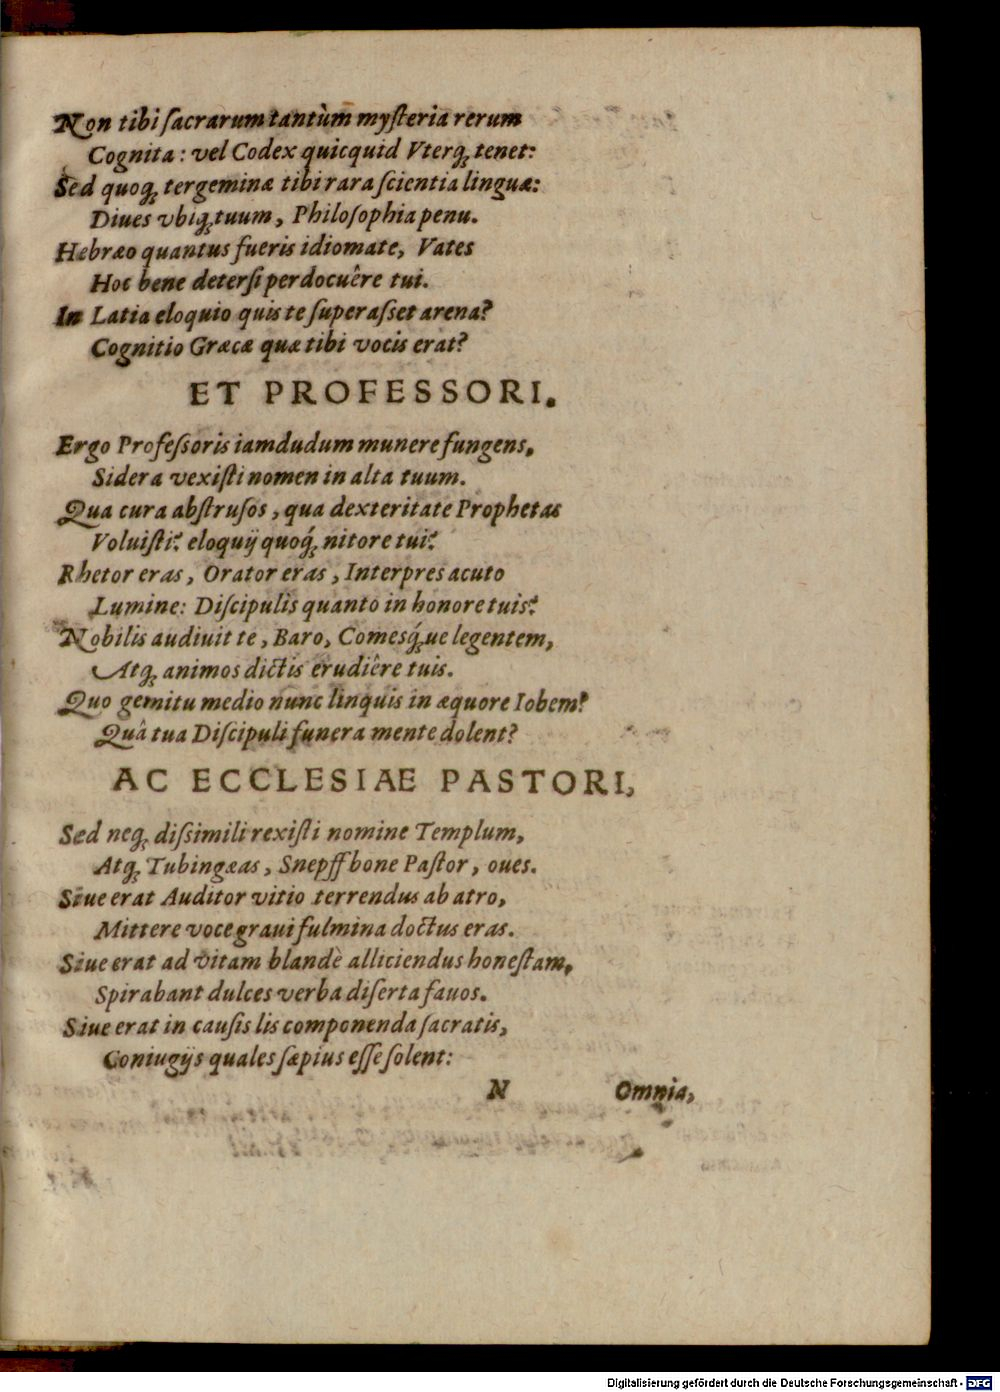 Non tibi ſacrarum tantùm myſteria rerum
Cognita: vel Codex quicquid Vterq; tenet:
Sed quoq; tergeminæ tibi rara ſcientia linguæ:
Diues vbiq; tuum, Philoſophia penu.
Hebræo quantus fueris idiomate, Vates
Hoc bene deterſi perdocuêre tui.
In Latia eloquio quis te ſuperaſſet arena?
Cognitio Græcæ quæ tibi vocis erat?
ET PROFESSORI.
Ergo Profeſſoris iamdudum munere fungens,
Sidera vexiſti nomen in alta tuum.
Qua cura abſtruſos, qua dexteritate Prophetas
Voluiſti? eloquij quoq́; nitore tui?
Rhetor eras, Orator eras, Interpres acuto
Lumine: Diſcipulis quanto in honore tuis?
Nobilis audiuit te, Baro, Comesq́;ue legentem,
Atq; animos dictis erudiêre tuis.
Quo gemitu medio nunc linquis in æquore Iobem?
Quâ tua Diſcipuli funera mente dolent?
AC ECCLESIAE PASTORI,
Sed neq; diſsimili rexiſti nomine Templum,
Atq; Tubingæas, Snepffbone Paſtor, oues.
Siue erat Auditor vitio terrendus ab atro,
Mittere voce graui fulmina doctus eras.
Siue erat ad vitam blandè alliciendus honeſtam,
Spirabant dulces verba diſerta fauos.
Siue erat in cauſis lis componenda ſacratis,
Coniugijs quales ſæpius eſſe ſolent:
N Omnia,
Digitalisierung gefördert durch die Deutsche Forschungsgemeinschaft - DFG